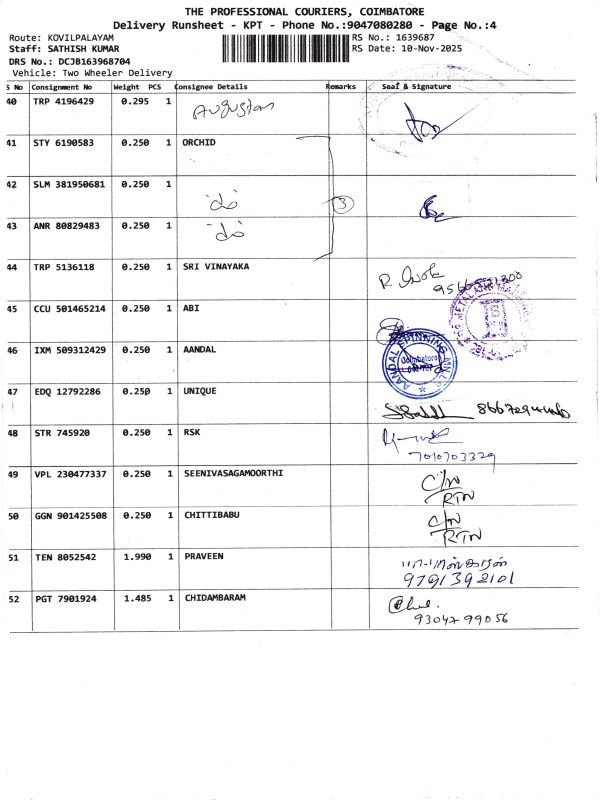 THE PROFESSIONAL COURIERS, COIMBATORE
Delivery Runsheet - KPT - Phone No.:9047080280 - Page No.:4
Route: KOVILPALAYAM RS No.: 1639687
Staff: SATHISH KUMAR RS Date: 10-Nov-2025
DRS No.: DCJB163968704
Vehicle: Two Wheeler Delivery
S No Consignment No Weight PCS Consignee Details Remarks Seal & Signature
40 TRP 4196429 0.295 1 Augustan
41 STY 6190583 0.250 1 ORCHID
42 SLM 381950681 0.250 1 do 3
43 ANR 80829483 0.250 1 do
44 TRP 5136118 0.250 1 SRI VINAYAKA
45 CCU 501465214 0.250 1 ABI
46 IXM 509312429 0.250 1 AANDAL AANDAL SPINNING Coimbatore
47 EDQ 12792286 0.250 1 UNIQUE
48 STR 745920 0.250 1 RSK 7010703329
49 VPL 230477337 0.250 1 SEENIVASAGAMOORTHI C/N RTN
50 GGN 901425508 0.250 1 CHITTIBABU C/N RTN
51 TEN 8052542 1.990 1 PRAVEEN 9791392101
52 PGT 7901924 1.485 1 CHIDAMBARAM 9304799056